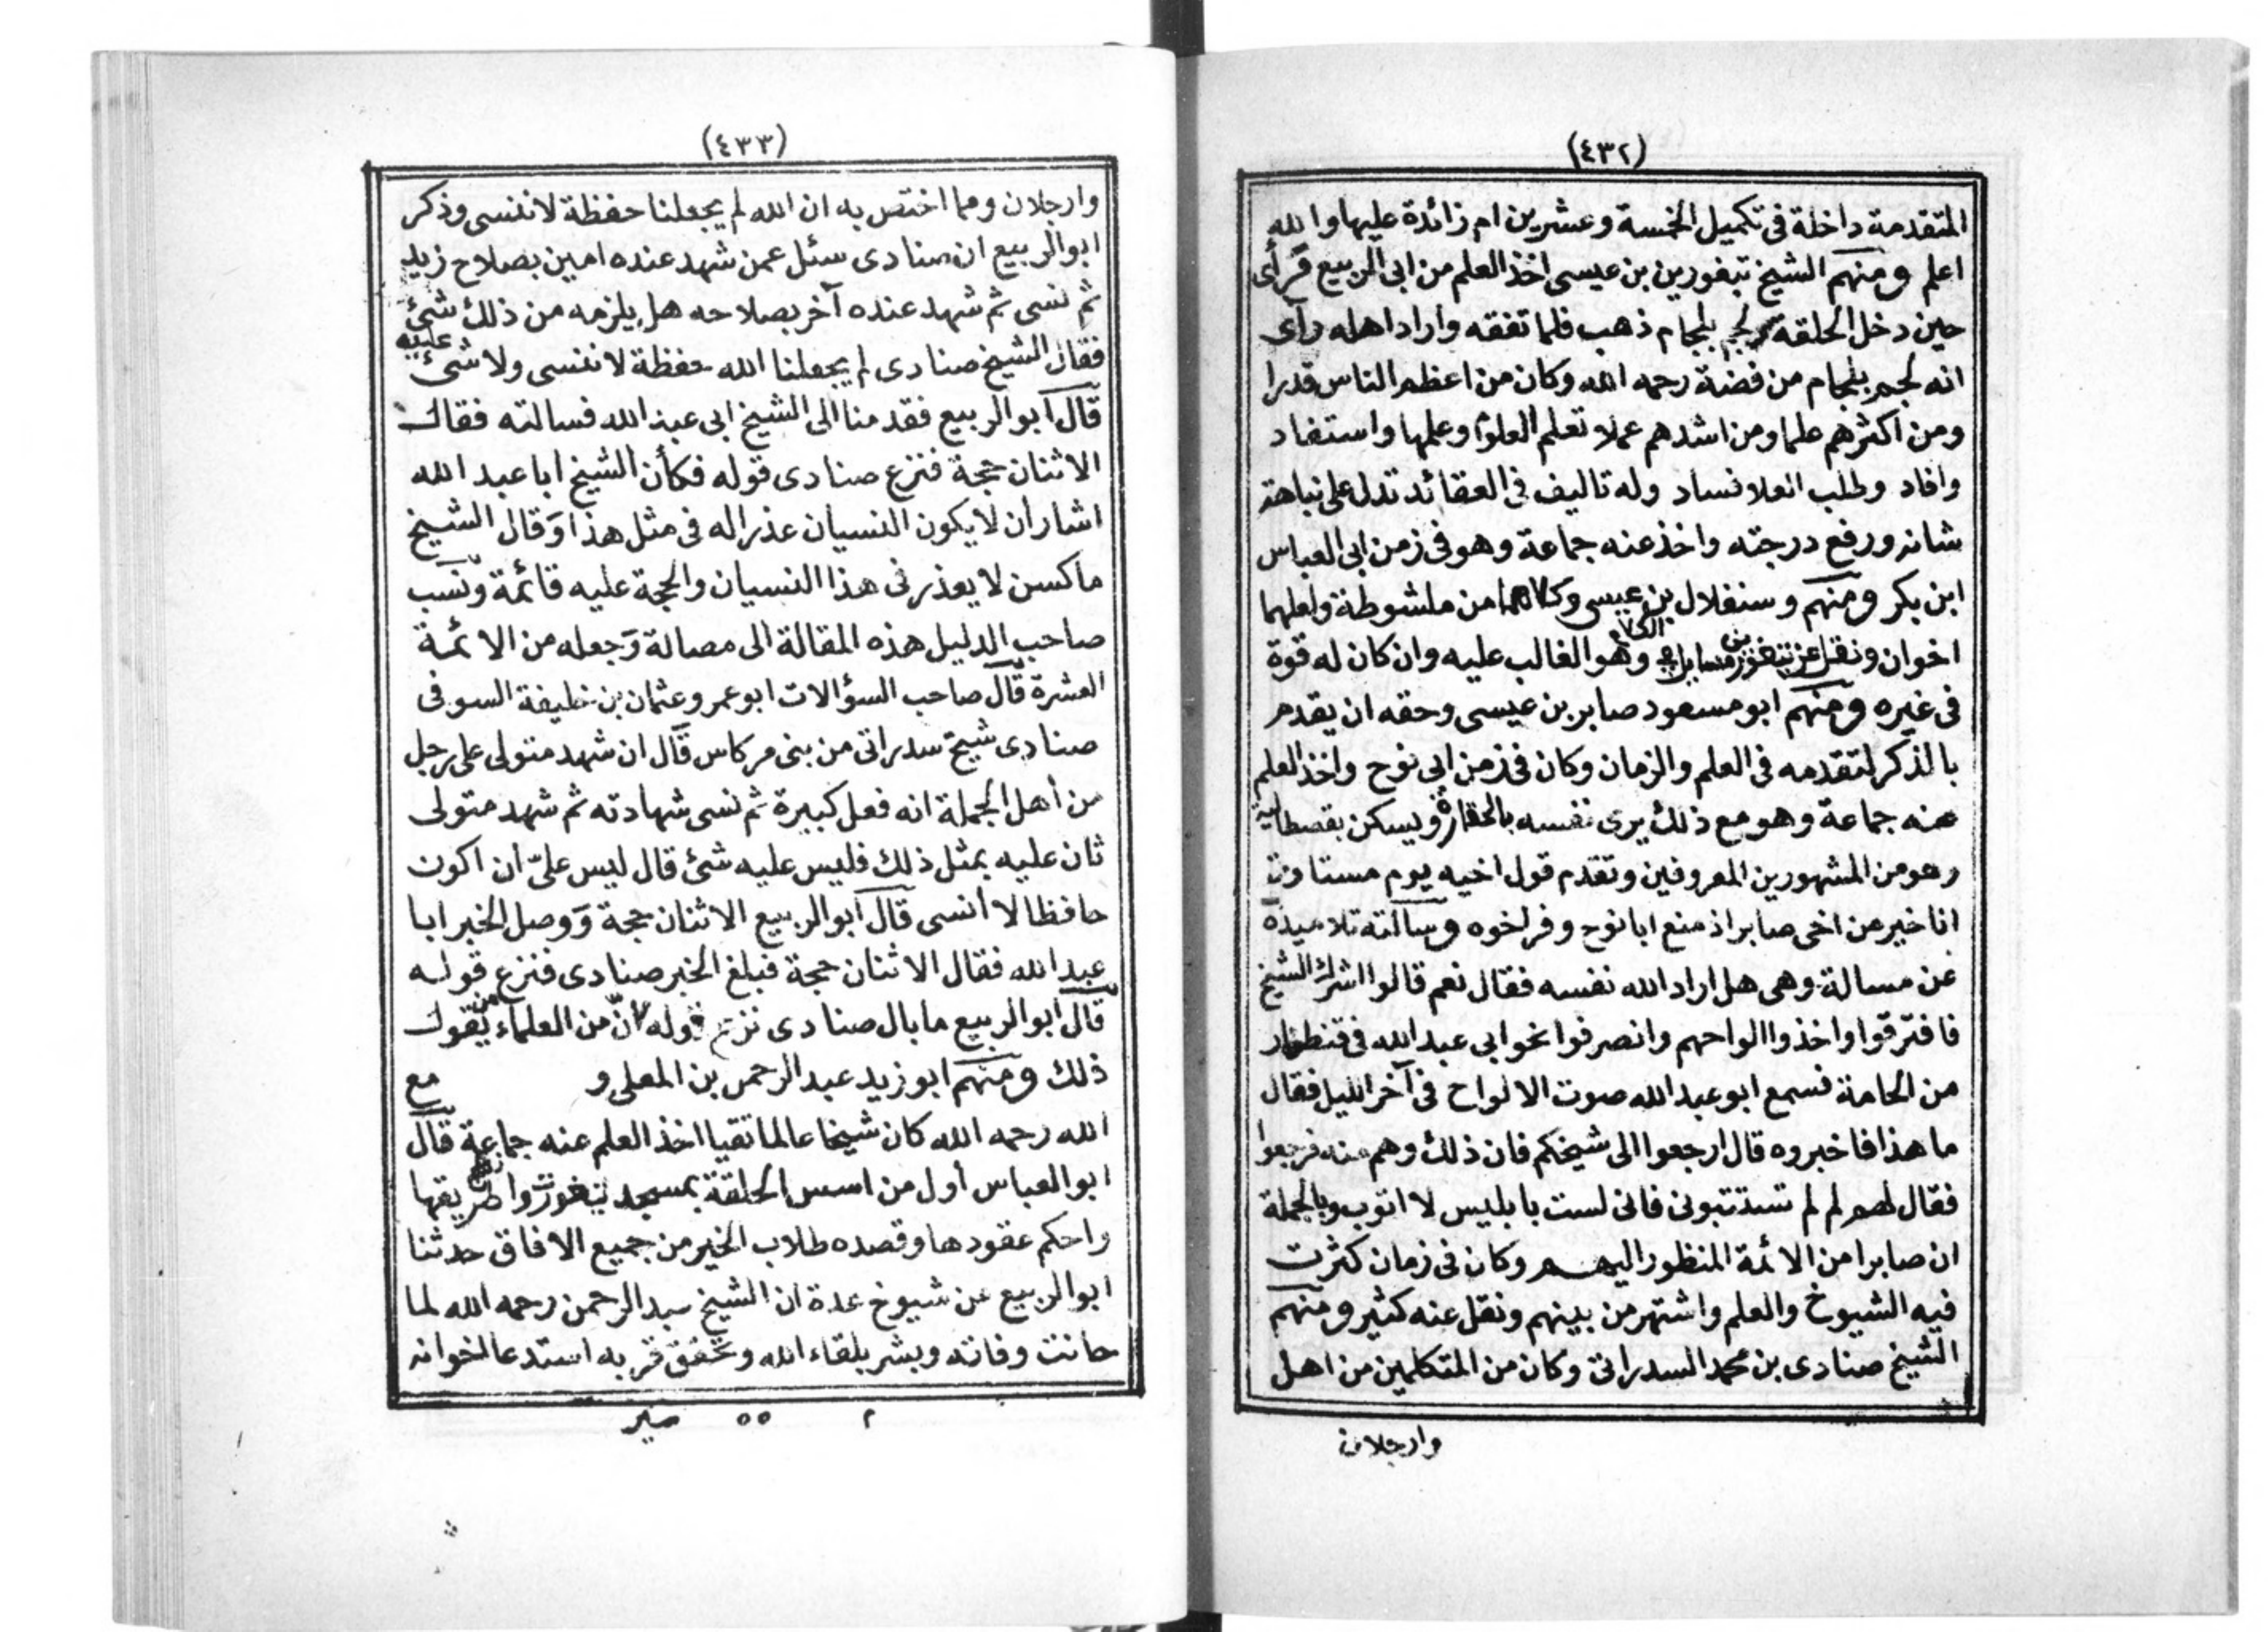 (٤٣٢)
المتقدمة داخلة فى تكميل الخمسة وعشرين ام زائدة عليها والله
اعلم ومنهم الشيخ تبغورين بن عيسى اخذ العلم من ابى الربيع فرأى
حين دخل الحلقة لجم بلجام ذهب فلما تفقه واراد اهله رآى
انه لجم بلجام من فضة رحمه الله وكان من اعظم الناس قدرا
ومن اكثرهم علما ومن اشدهم عملا تعلم العلوم وعلمها واستفاد
وافاد وطلب العلا فساد وله تاليف فى العقائد تدل على نباهة
شانه ورفع درجته واخذ عنه جماعة وهو فى زمن ابى العباس
ابن بكر ومنهم وسنفلال بن عيسى وكلاهما من ملشوطة ولعلهما
اخوان ونقل عن تبغورين الكلام وهو الغالب عليه وان كان له قوة
فى غيره ومنهم ابو مسعود صابر بن عيسى وحقه ان يقدم
بالذكر لتقدمه فى العلم والزمان وكان فى زمن ابى نوح واخذ العلم
عنه جماعة وهو مع ذلك يرى نفسه بالحقارة ويسكن بقصطالية
وهو من المشهورين المعروفين وتقدم قول اخيه يوم مستاوت
انا خير من اخى صابر اذ منع ابا نوح وفر لخوه وسالته تلاميذه
عن مسالة وهى هل اراد الله نفسه فقال نعم قالوا اشرك الشيخ
فافترقوا واخذوا الواحهم وانصرفوا نحو ابى عبد الله فى قنطرار
من الحامة فسمع ابو عبد الله صوت الالواح فى آخر الليل فقال
ما هذا فاخبروه قال ارجعوا الى شيخكم فان ذلك وهم منه فرجعوا
فقال لهم لم لم تستتبونى فانى لست بابليس لا اتوب وبالجملة
ان صابرا من الائمة المنظور اليهم وكان فى زمان كثرت
فيه الشيوخ والعلم واشتهر من بينهم ونقل عنه كثير ومنهم
الشيخ صنادى بن محمد السدراتى وكان من المتكلمين من اهل
وارجلان
(٤٣٣)
وارجلان ومما اختص به ان الله لم يجعلنا حفظة لا ننسى وذكر
ابو الربيع ان صنادى سئل عمن شهد عنده امين بصلاح زيد
ثم نسى ثم شهد عنده آخر بصلاحه هل يلزمه من ذلك شئ
فقال الشيخ صنادى لم يجعلنا الله حفظة لا ننسى ولا شئ عليه
قال ابو الربيع فقدمنا الى الشيخ ابى عبد الله فسالته فقال
الاثنان حجة فنزع صنادى قوله فكأن الشيخ ابا عبد الله
اشار أن لا يكون النسيان عذرا له فى مثل هذا وقال الشيخ
ماكسن لا يعذر فى هذا النسيان والحجة عليه قائمة ونسب
صاحب الدليل هذه المقالة الى مصالة وجعله من الائمة
العشرة قال صاحب السؤالات ابو عمرو عثمان بن خليفة السوفى
صنادى شيخ سدراتى من بنى مركاس قال ان شهد متولى على رجل
من أهل الجملة انه فعل كبيرة ثم نسى شهادته ثم شهد متولى
ثان عليه بمثل ذلك فليس عليه شئ قال ليس علىّ ان اكون
حافظا لا أنسى قال ابو الربيع الاثنان حجة ووصل الخبر ابا
عبد الله فقال الاثنان حجة فبلغ الخبر صنادى فنزع قوله
قال ابو الربيع ما بال صنادى نزع قوله لأنّ من العلماء من يقول
ذلك ومنهم ابو زيد عبد الرحمن بن المعلى و مع
الله رحمه الله كان شيخا عالما تقيا اخذ العلم عنه جماعة قال
ابو العباس أول من اسس الحلقة بمسجد تيغورت طريقها
واحكم عقودها وقصده طلاب الخير من جميع الافاق حدثنا
ابو الربيع عن شيوخ عدة ان الشيخ عبد الرحمن رحمه الله لما
حانت وفاته وبشر بلقاء الله وتحقق قربه استدعا اخوانه
م ٥٥ صير